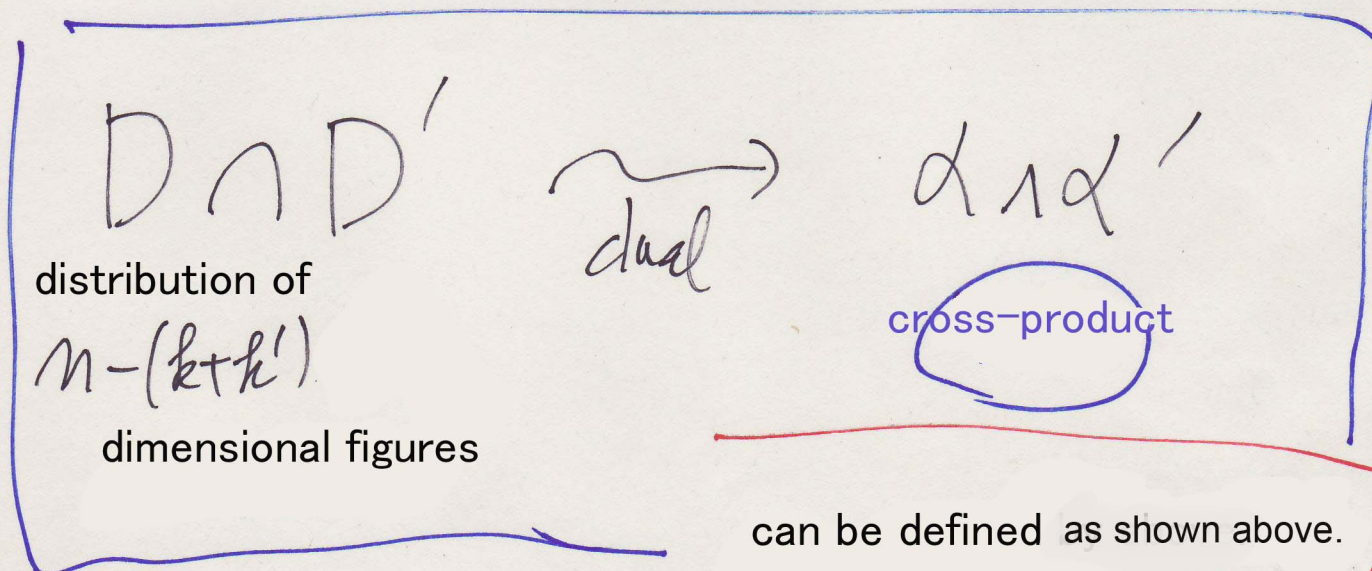 D ∩ D′ ⟶ α ∧ α′
dual
distribution of
n-(k+k′)
dimensional figures
cross-product
can be defined as shown above.